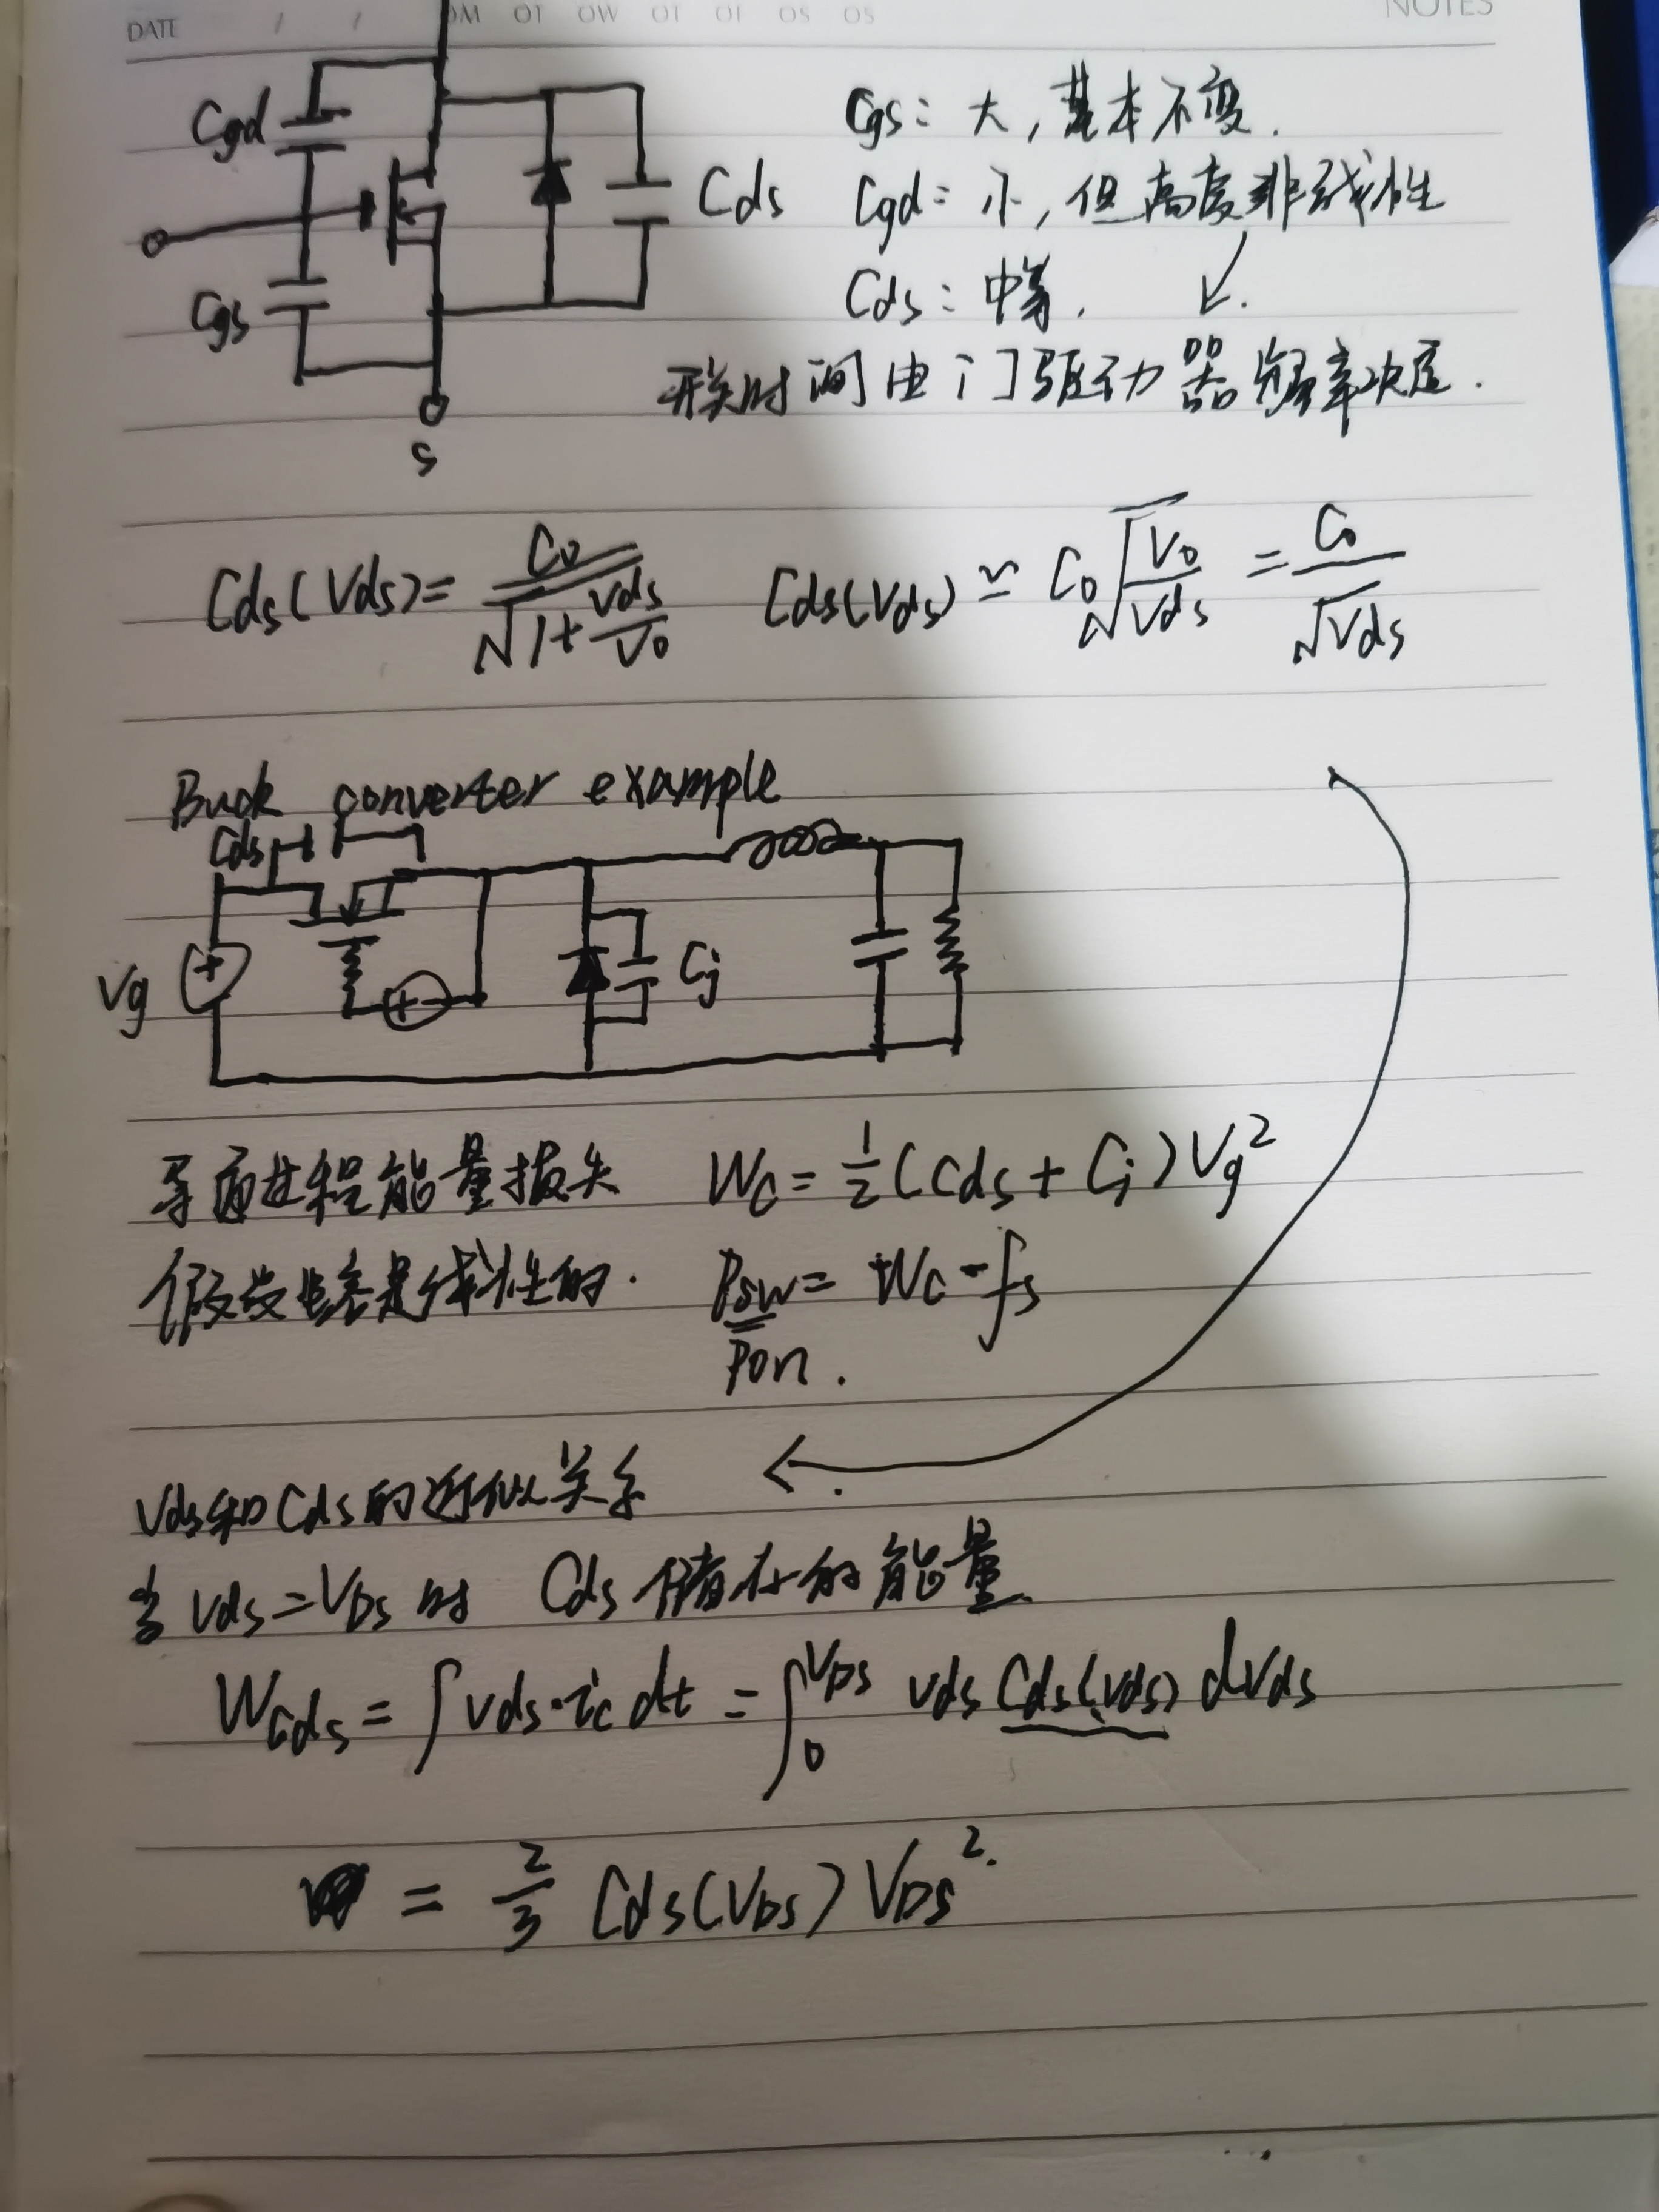 DATE / / OM OT OW OT OF OS OS NOTES
Cgd
Cds
Cgs
S
Cgs: 大,基本不变.
Cgd: 小,但高度非线性
Cds: 中等.
开关时间由门驱动器 决定.
Cds(Vds) = C0 / √(1+Vds/V0) Cds(Vds) ≈ C0 √(V0/Vds) = C0 / √Vds
Buck converter example
Cds
Vg
+
+ -
Cj
导通过程能量损失 Wc = 1/2 (Cds + Cj) Vg²
假设电容是线性的. Psw = Wc · fs
Pon.
Vds和Cds的近似关系
当 Vds = VDS 时 Cds 储存的能量
WCds = ∫ Vds · ic dt = ∫₀^VDS Vds Cds(Vds) dVds
= 2/3 Cds(VDS) VDS².